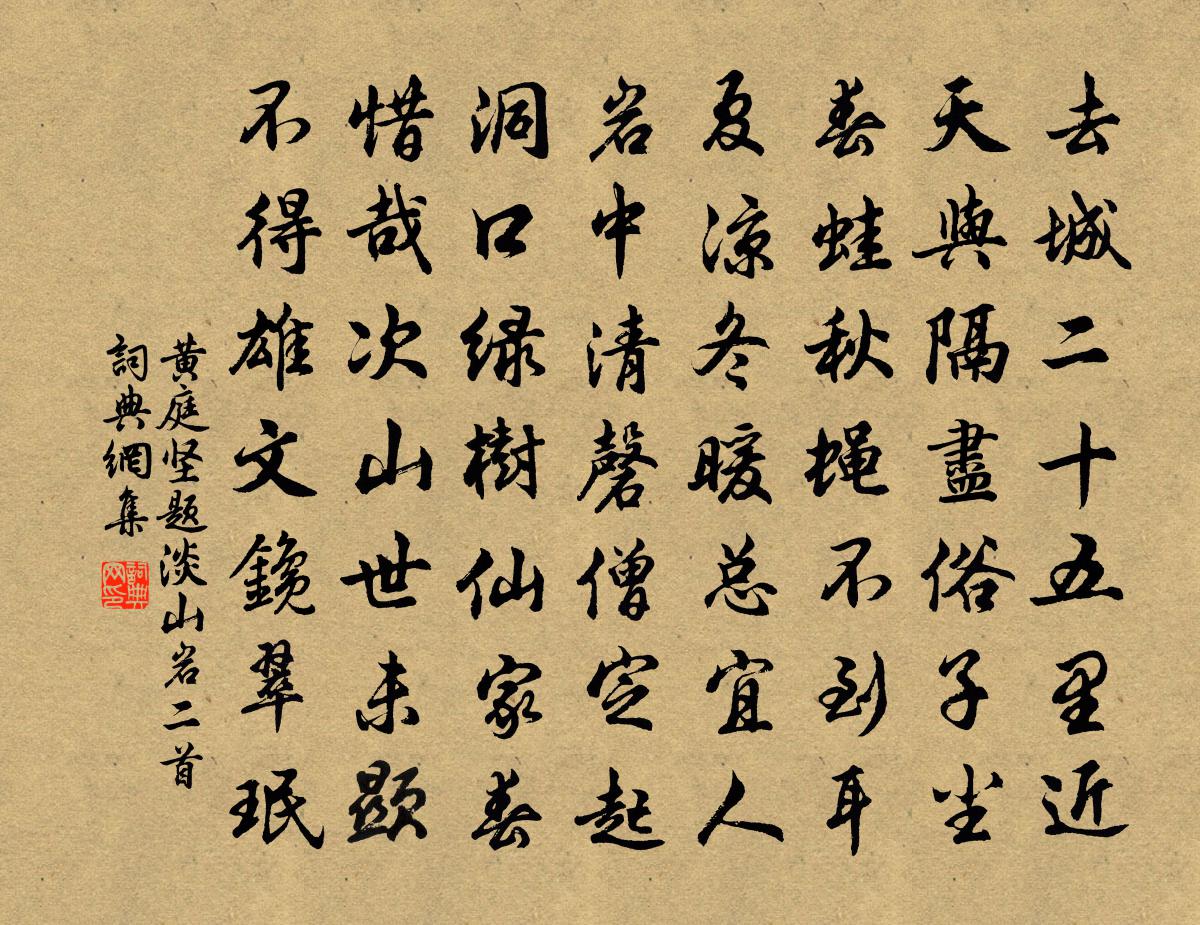 去城二十五里近
天與隔盡俗子尘
春蛙秋蝇不到耳
夏凉冬暖总宜人
岩中清磬僧定起
洞口绿樹仙家春
惜哉次山世未顕
不得雄文鑱翠珉
黄庭坚题淡山岩二首
詞典網集
詞典网印